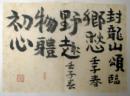 封龍山頌臨
壬子春
鄉愁
野趣
壬子春
物體
初心